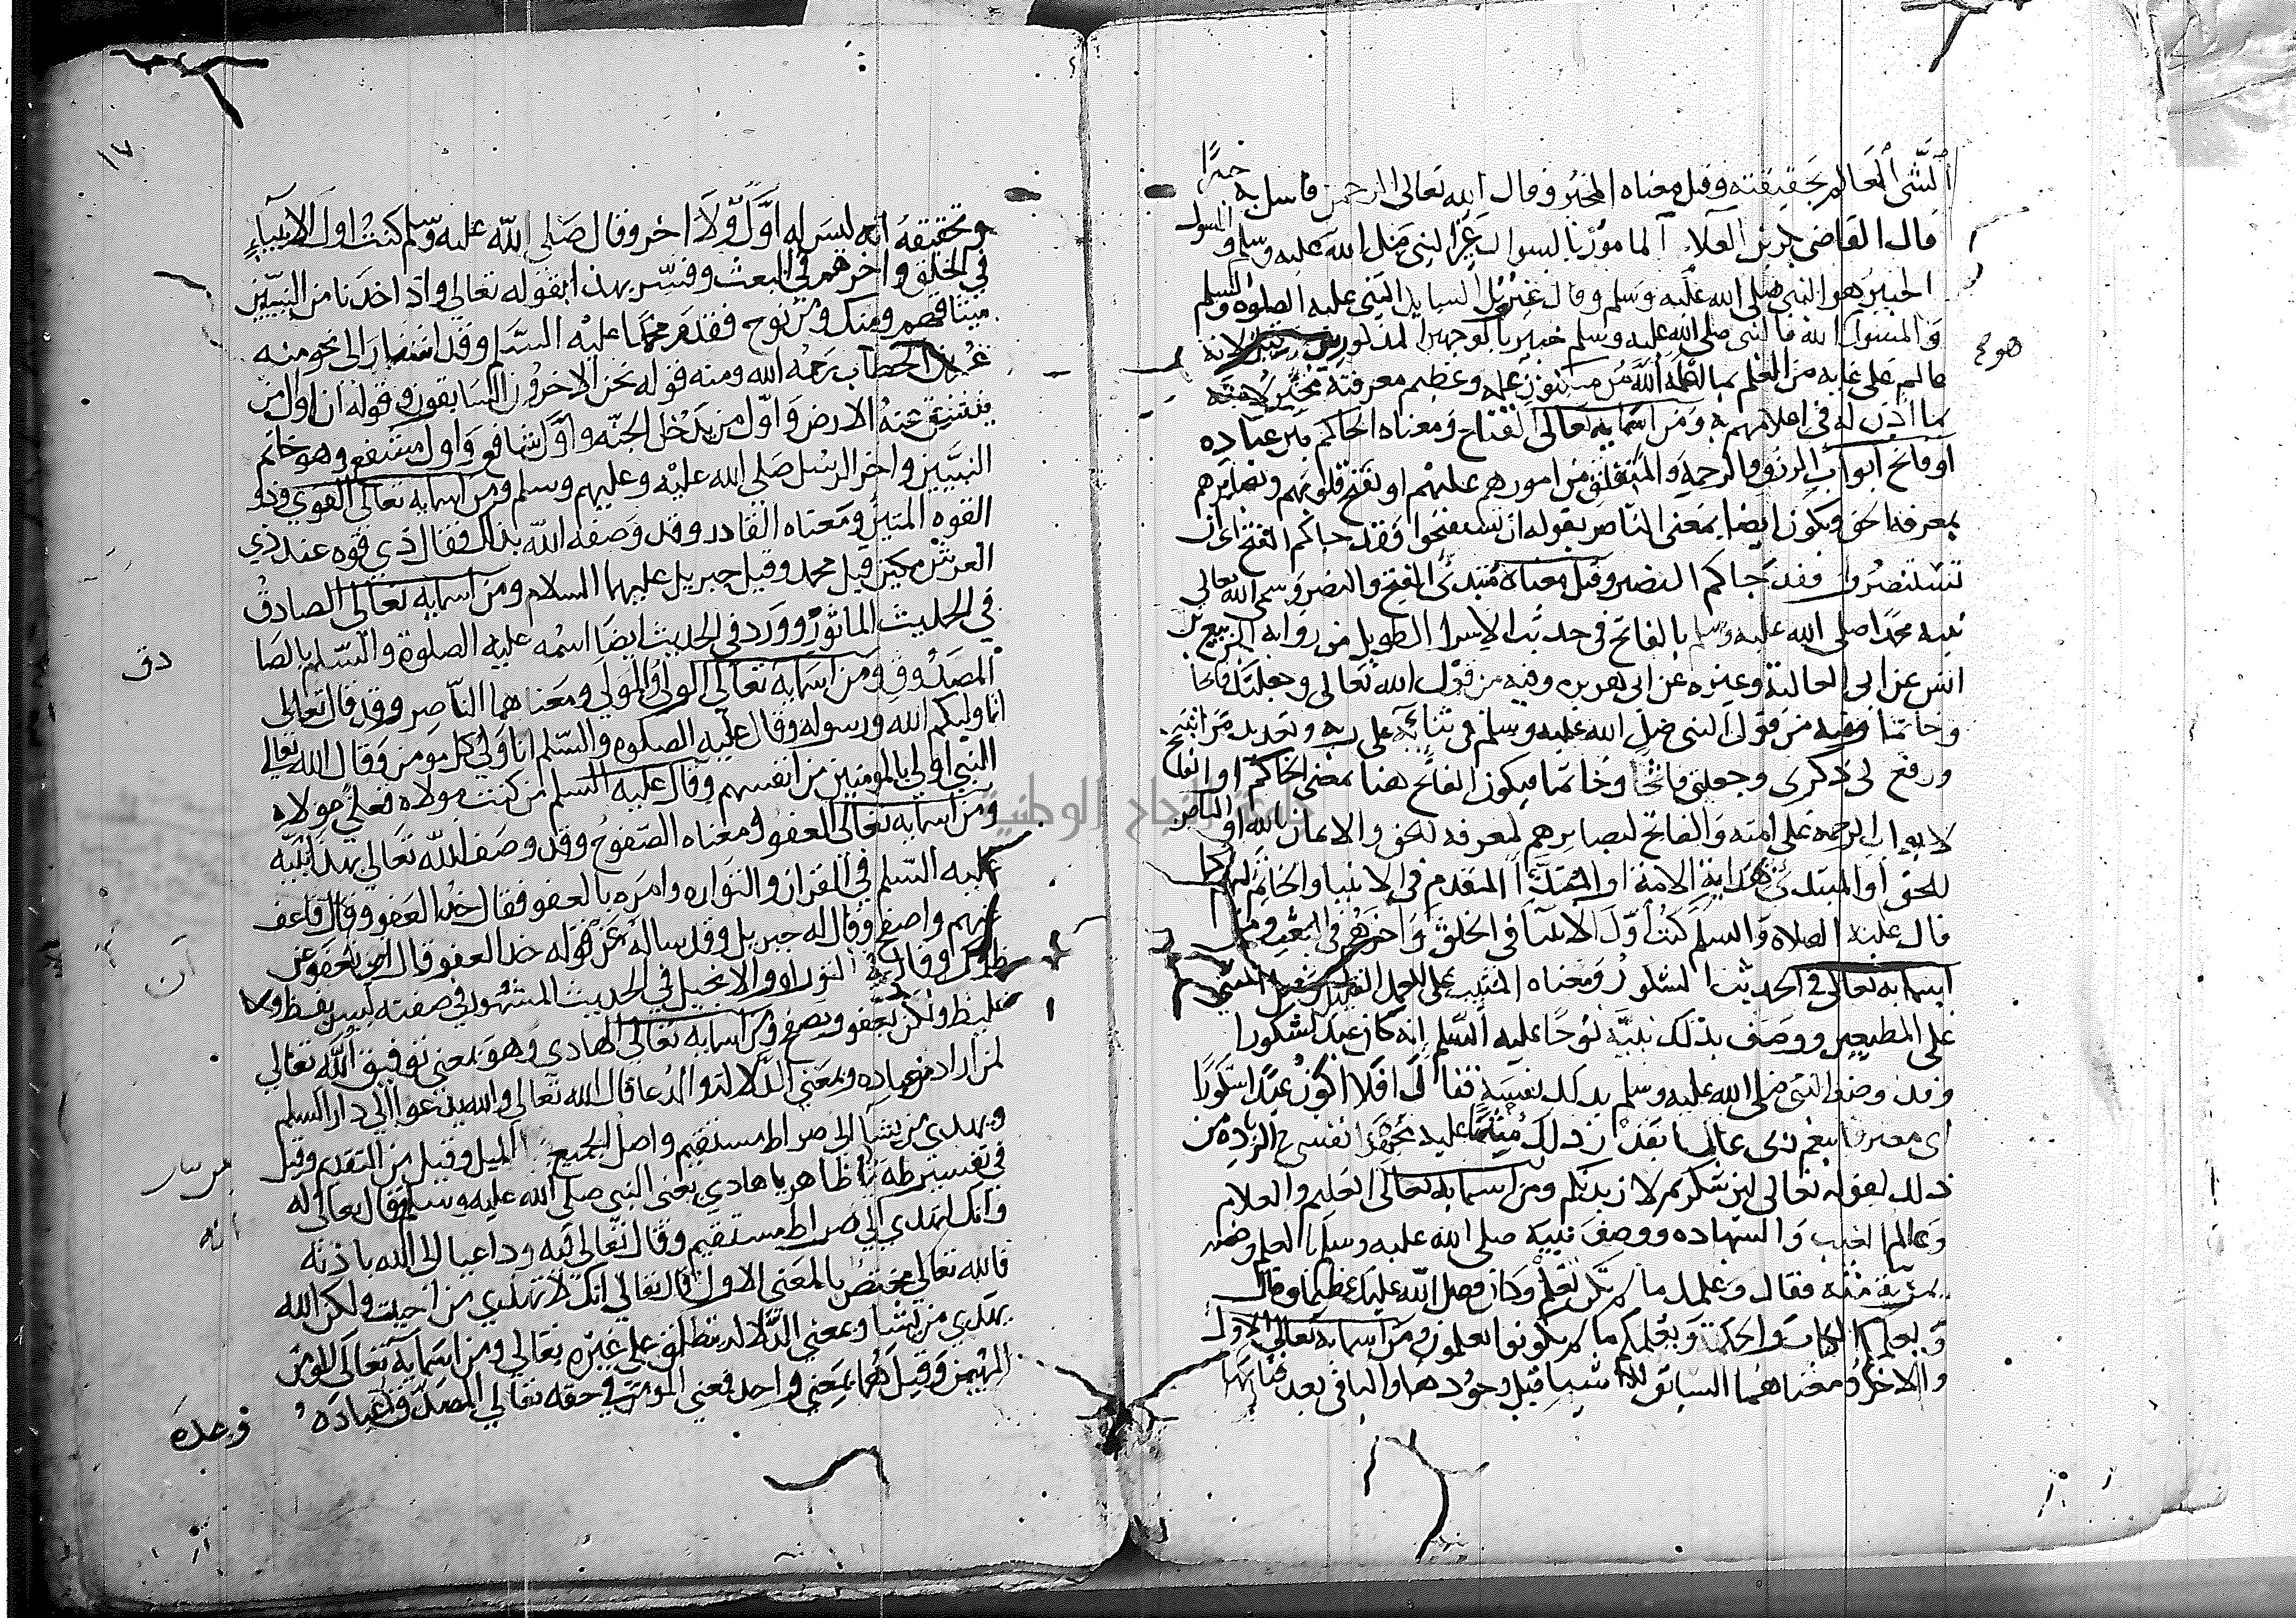 الشي العالم بحقيقته وقيل معناه المخبر وقال الله تعالى الرحمن فاسل به خبيرا
قال القاضي بكر بن العلاء المامور بالسوال غير النبي صلى الله عليه وسلم والمسول
الخبير هو النبي صلى الله عليه وسلم وقال غيره بل السايل النبي عليه الصلوة والسلم
والمسول الله فالنبي صلى الله عليه وسلم خبير بالوجهين المذكورين قيل لانه
عالم على غاية من العلم بما اعلمه الله من مكنون علمه وعظيم معرفته مخبر لامته
بما اذن له في اعلامهم به ومن اسمايه تعالى الفتاح ومعناه الحاكم بين عباده
او فاتح ابواب الرزق والرحمة والمنغلق من امورهم عليهم او يفتح قلوبهم وبصايرهم
بمعرفه الحق ويكون ايضا بمعنى الناصر بقوله ان تستفتحوا فقد جاكم الفتح اي ان
تستنصروا فقد جاكم النصر وقيل معناه مبتدئ الفتح والنصر وسمى الله تعالى
نبيه محمدا صلى الله عليه وسلم بالفاتح في حديث الاسرا الطويل من رواية الربيع بن
انس عن ابي العالية وغيره عن ابي هريره وفيه من قول الله تعالى وجعلتك فاتحا
وخاتما وفيه من قول النبي صلى الله عليه وسلم في ثنائه على ربه وتعديد مراتبه
ورفع لي ذكرى وجعلني فاتحا وخاتما فيكون الفاتح هنا بمعنى الحاكم او الفاتح
لابواب الرحمة على امته والفاتح لبصايرهم لمعرفه الحق والايمان بالله او الناصر
للحق او المبتدئ بهداية الامة او المبتدأ المقدم في الانبيا والخاتم لهم كما
قال عليه الصلاة والسلم كنت اول الانبيا في الخلق واخرهم في البعث ومن
اسمايه تعالى في الحديث الشكور ومعناه المثيب على العمل القليل وقيل المثني
على المطيعين ووصف بذلك نبيه نوحا عليه السلم انه كان عبدا شكورا
وقد وصف النبي صلى الله عليه وسلم بذلك نفسه فقال افلا اكون عبدا شكورا
اي معترفا بنعم ربي عالما بقدر ذلك مثنيا عليه مجهدا نفسي في الزياده من
ذلك لقوله تعالى لين شكرتم لازيدنكم ومن اسمايه تعالى العليم والعلام
وعالم الغيب والشهاده ووصف نبيه صلى الله عليه وسلم بالعلم وخصه
بمزية منه فقال وعلمك ما لم تكن تعلم وكان فضل الله عليك عظيما وقال
ويعلمكم الكتاب والحكمة ويعلمكم ما لم تكونوا تعلمون ومن اسمايه تعالى الاول
والاخر ومعناهما السابق للاشيا قبل وجودها والباقي بعد فنايها
هو ع
١٧
وتحقيقه انه ليس له اول ولا اخر وقال صلى الله عليه وسلم كنت اول الانبياء
في الخلق واخرهم في البعث وفسر بهذا بقوله تعالى واذ اخذنا من النبيين
ميثاقهم ومنك ومن نوح فقدم محمدا عليه السلم وقد اشار الى نحو منه
عمر بن الخطاب رحمه الله ومنه قوله نحن الاخرون السابقون وقوله انا اول من
تنشق عنه الارض واول من يدخل الجنه واول شافع واول مشفع وهو خاتم
النبيين واخر الرسل صلى الله عليه وعليهم وسلم ومن اسمايه تعالى القوي وذو
القوه المتين ومعناه القادر وقد وصفه الله بذلك فقال ذي قوه عند ذي
العرش مكين قيل محمد وقيل جبريل عليهما السلام ومن اسمايه تعالى الصادق
في الحديث الماثور وورد في الحديث ايضا اسمه عليه الصلوة والسلم بالصا
دق
المصدوق ومن اسمايه تعالى الولي والمولى ومعناهما الناصر وقد قال تعالى
انما وليكم الله ورسوله وقال عليه الصلوه والسلم انا ولي كل مومن وقال الله تعالى
النبي اولى بالمومنين من انفسهم وقال عليه السلم من كنت مولاه فعلي مولاه
ومن اسمايه تعالى العفو ومعناه الصفوح وقد وصف الله تعالى بهذا نبيه
عليه السلم في القران والتوراه وامره بالعفو فقال خذ العفو وقال فاعف
عنهم واصفح وقال له جبريل وقد ساله عن قوله خذ العفو قال ان تعفو عن
ظلمك وقال في التوراه والانجيل في الحديث المشهور في صفته ليس بفظ ولا
غليظ ولكن يعفو ويصفح ومن اسمايه تعالى الهادي وهو بمعنى توفيق الله تعالى
لمن اراد من عباده وبمعنى الدلالة والدعا قال الله تعالى والله يدعوا الى دار السلم
ويهدي من يشا الى صراط مستقيم واصل الجميع الميل وقيل من التقدم وقيل
في تفسير طه يا طاهر يا هادي يعني النبي صلى الله عليه وسلم وقال تعالى له
وانك لتهدي الى صراط مستقيم وقال تعالى فيه وداعيا الى الله باذنه
فالله تعالى مختص بالمعنى الاول قال تعالى انك لا تهدي من احببت ولكن الله
يهدي من يشا وبمعنى الدلاله ينطلق على غيره تعالى ومن اسمايه تعالى المومن
المهيمن وقيل هما بمعنى واحد فمعنى المومن في حقه تعالى المصدق عباده
وعده
جامعة النجاح الوطنية